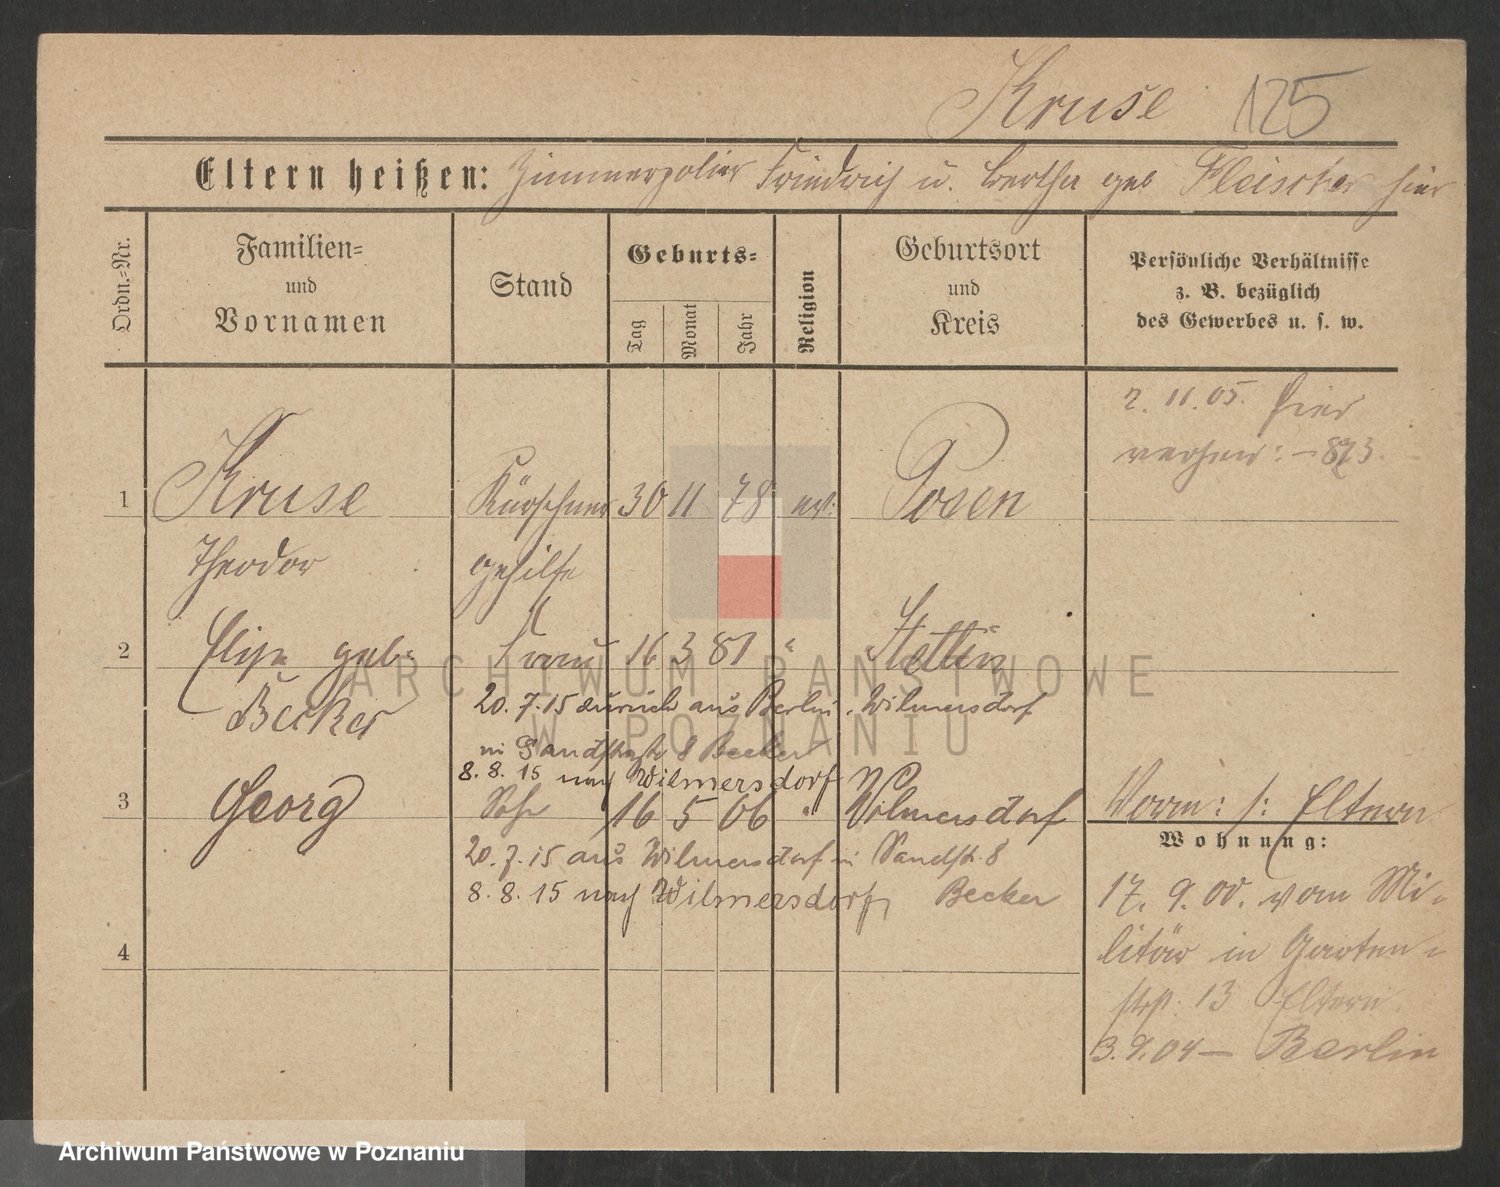 Kruse 125
Eltern heißen: Zimmerpolier Friedrich u. Bertha geb Fleischer hier
Ordn.-Nr.
Familien-
und
Vornamen
Stand
Geburts-
Tag
Monat
Jahr
Religion
Geburtsort
und
Kreis
Persönliche Verhältnisse
z. B. bezüglich
des Gewerbes u. s. w.
2. 11. 05. hier
873
1 Kruse Kürschner 30 11 78 ev. Posen
Theodor gehilfe
2 Elise geb. Frau 16 3 81 " Stettin
Becker
20. 7. 15 zurück aus Berlin, Wilmersdorf
in Sandstraße 8 Becker
8. 8. 15 nach Wilmersdorf
3 Georg Sohn 16 5 06 " Wilmersdorf
Vorm: s: Eltern
20. 7. 15 aus Wilmersdorf in Sandstr. 8
8. 8. 15 nach Wilmersdorf Becker
4
Wohnung:
17. 9. 00. vom Mi-
litär in Garten-
str. 13 Eltern
3. 9. 04 — Berlin
ARCHIWUM PAŃSTWOWE
W POZNANIU
Archiwum Państwowe w Poznaniu